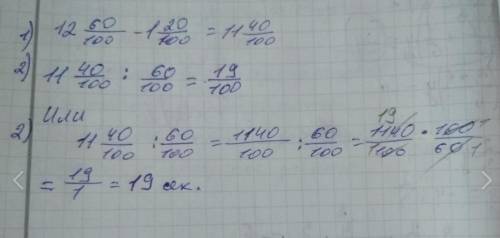 1) 12 60/100 - 1 20/100 = 11 40/100
2) 11 40/100 : 60/100 = 19/100
Или
2) 11 40/100 : 60/100 = 1140/100 : 60/100 = 19 1140/100 • 100 1/60 1
= 19/1 = 19 як.